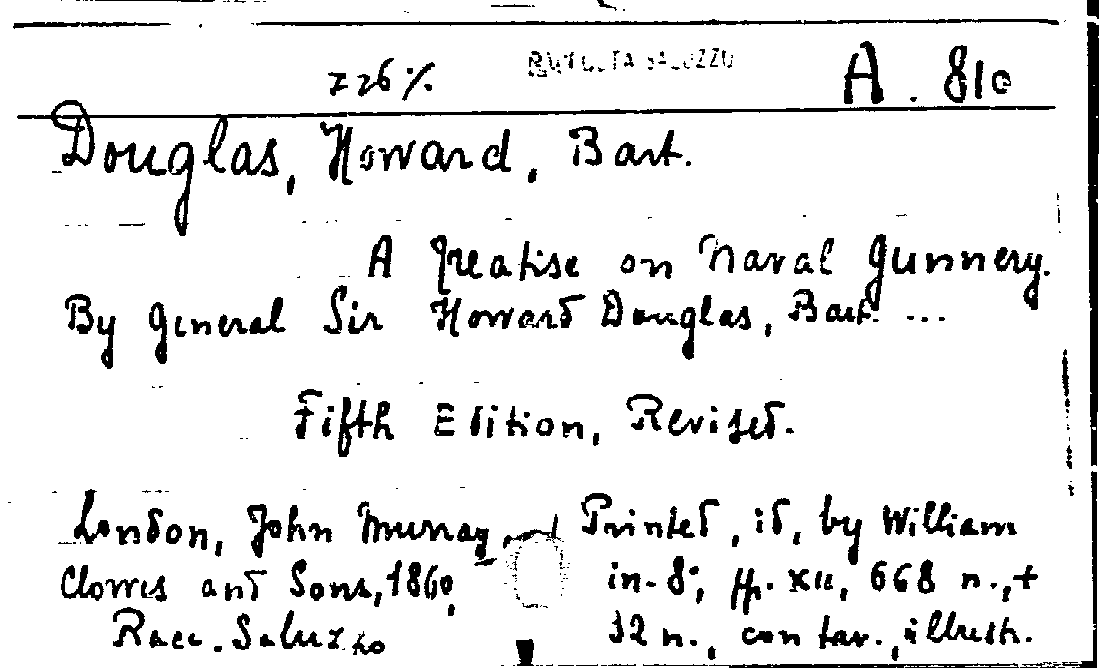 726% RACCOLTA SALUZZO A. 810
Douglas, Howard, Bart.
A Treatise on Naval Gunnery.
By General Sir Howard Douglas, Bart. ...
Fifth Edition, Revised.
London, John Murray, - Printed, id, by William
Clowes and Sons, 1860, in-8°, pp. XII, 668 n., +
Racc. Saluzzo 32 n., con tav., illustr.